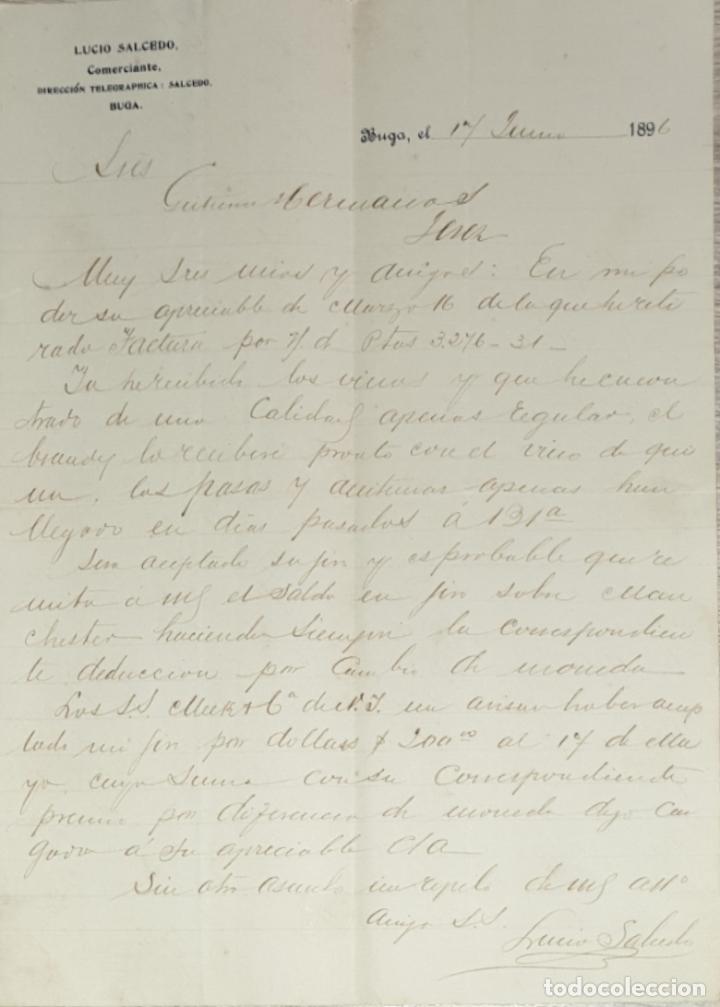 LUCIO SALCEDO,
Comerciante,
DIRECCIÓN TELEGRAPHICA: SALCEDO.
BUGA.
Buga, el 17 Junio 1896
Sres
Hermanos
Jerez
Muy Sres mios y amigos: En mi po
der su apreciable de Marzo 16 de la que he reti
rado Factura por Ptas 3.276-31-
Ya he recibido los vinos y que he encon
trado de una Calidad apenas regular, el
brandy lo recibiré pronto con el vino de qui
na, las pasas y aceitunas apenas han
llegado en dias pasados á
Sera aceptado su jiro y es probable que re
mita a el saldo en jiro sobre Man
chester haciendo siempre la correspondien
te deduccion por Cambio de moneda
Los S.S. Ca de N.Y. me avisan haber acep
tado mi jiro por dollars $ 200 00 al 17 de Ma
yo, cuya Suma con su Correspondiente
premio por diferencia de moneda dejo car
gada á su apreciable cta
Sin otro asunto me repito de
amigo S.S.
Lucio Salcedo
todocoleccion